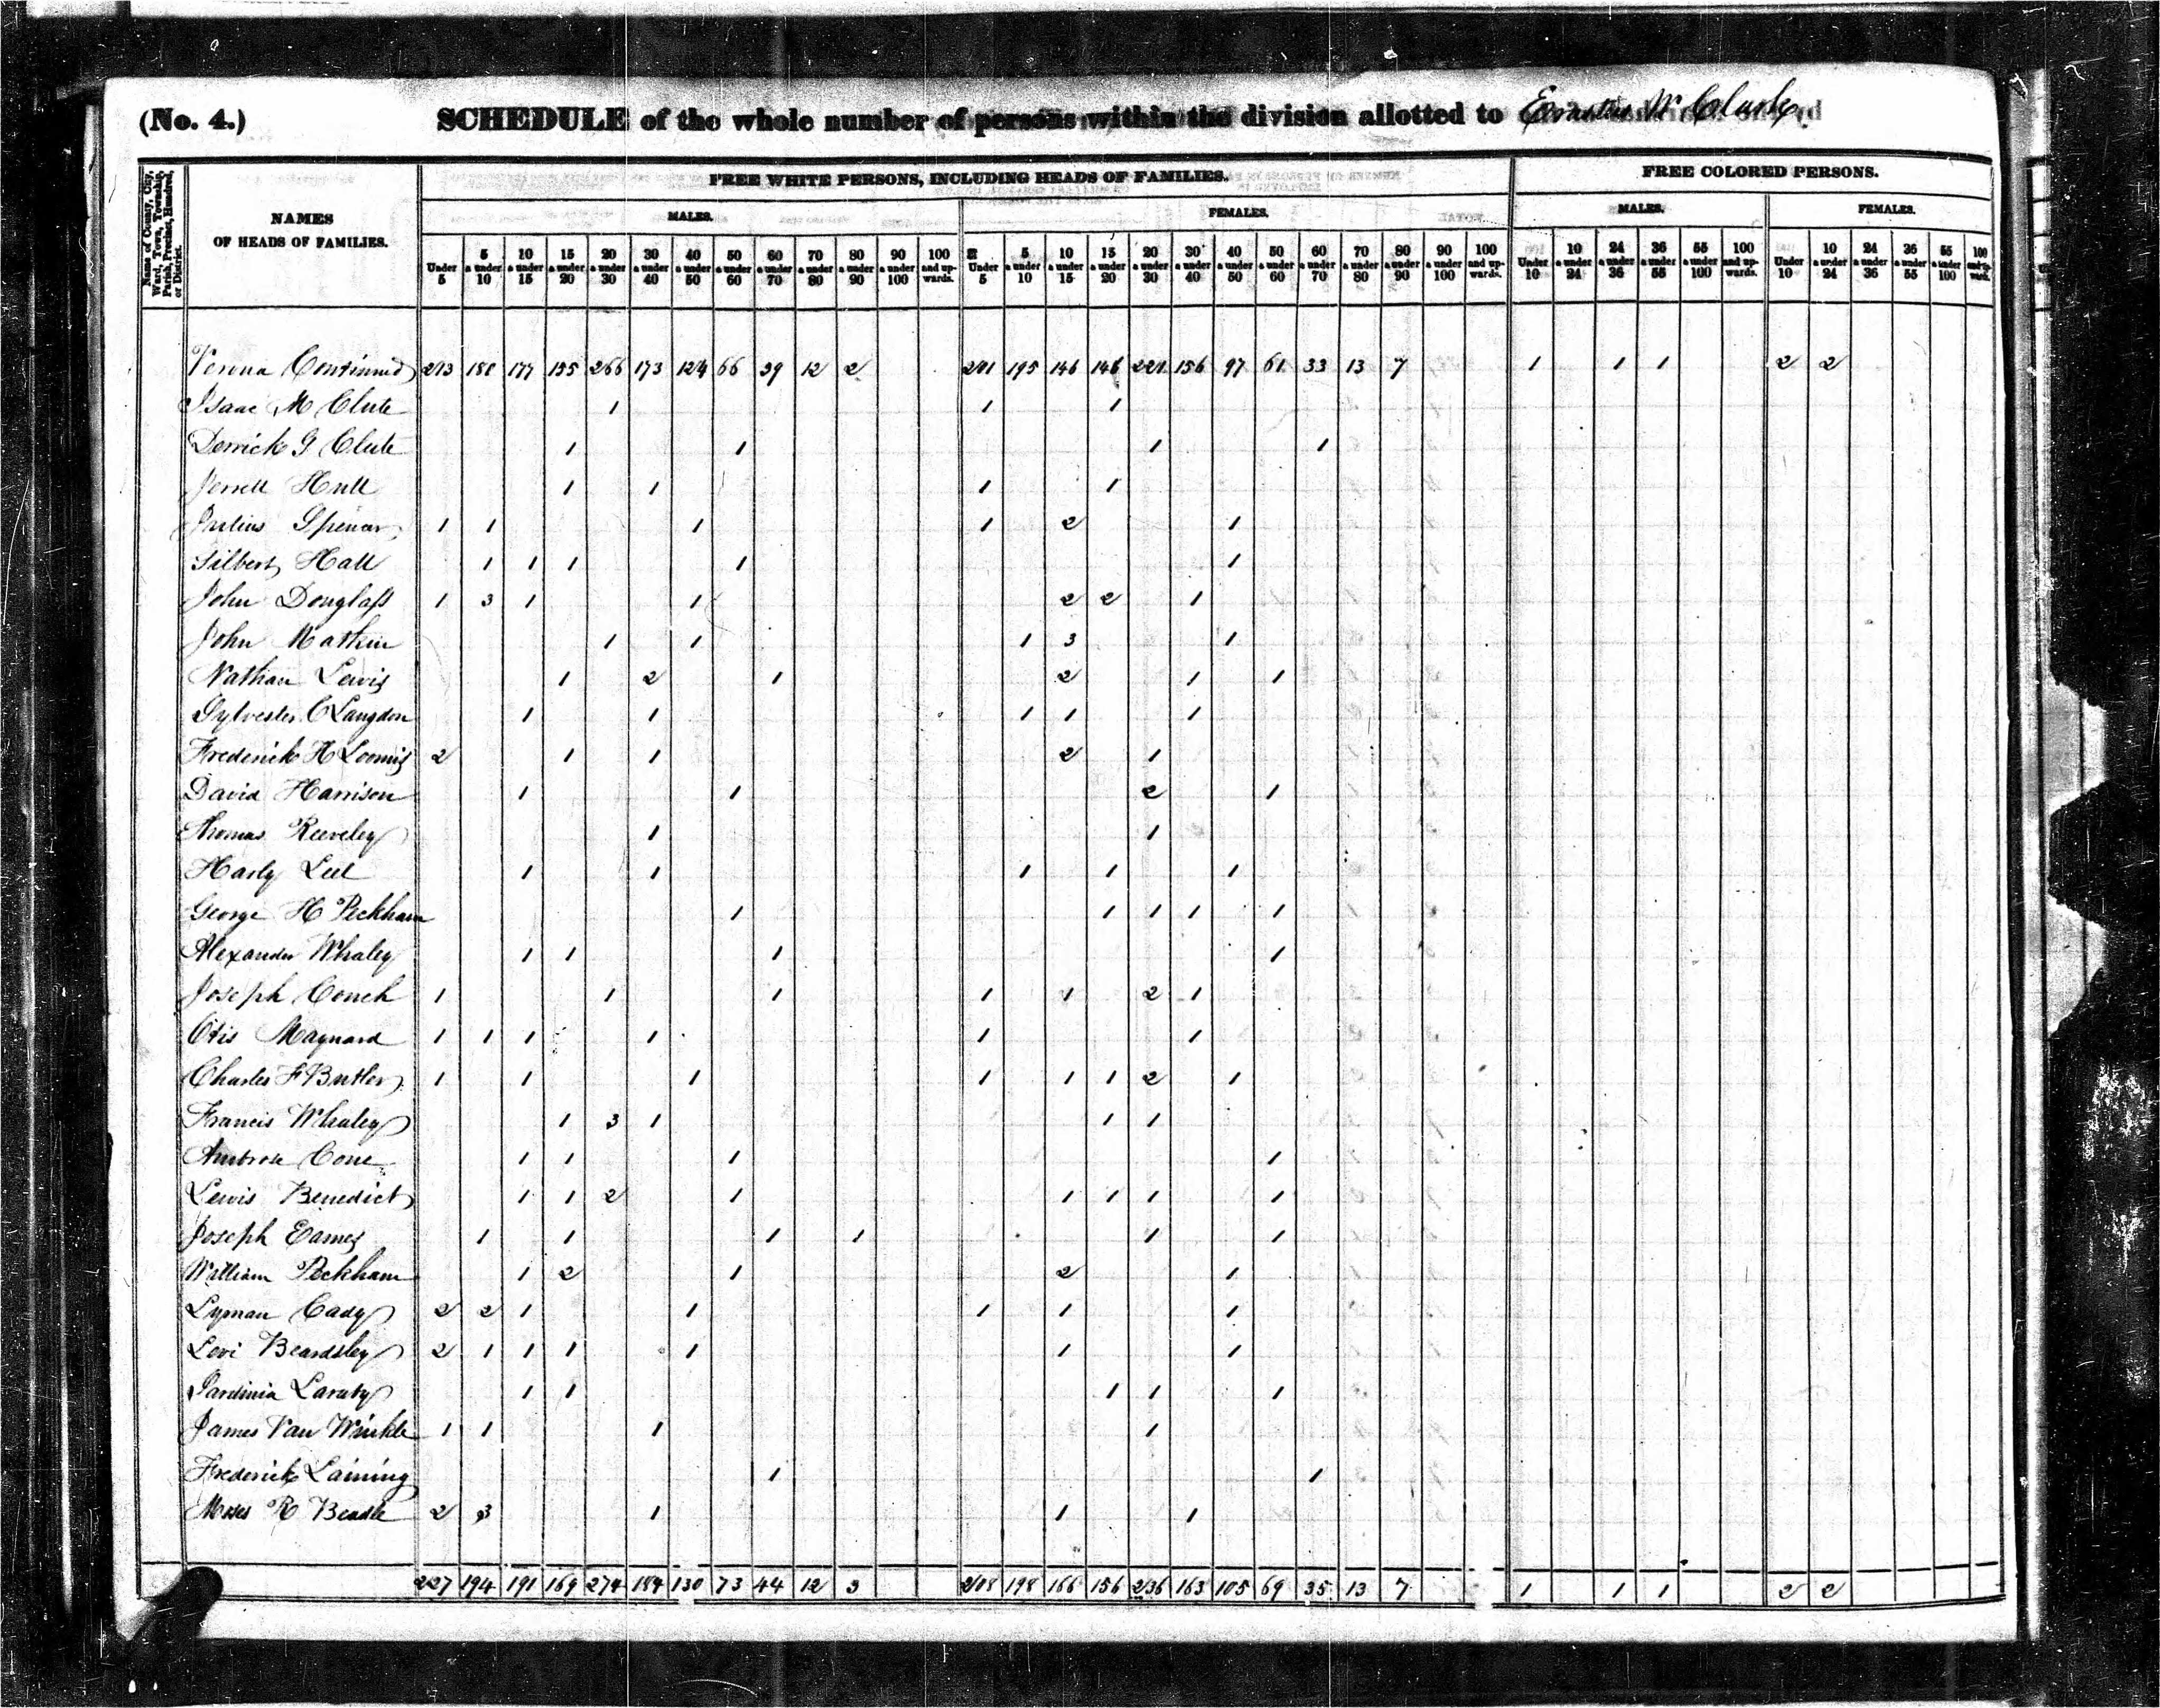 (No. 4.) SCHEDULE of the whole number of persons within the division allotted to Erastus W Clarke
Name of County, City, Ward, Town, Township, Parish, Precinct, Hundred, or District.
NAMES OF HEADS OF FAMILIES.
FREE WHITE PERSONS, INCLUDING HEADS OF FAMILIES.
FREE COLORED PERSONS.
MALES. FEMALES. MALES. FEMALES.
Under 5 | 5 & under 10 | 10 & under 15 | 15 & under 20 | 20 & under 30 | 30 & under 40 | 40 & under 50 | 50 & under 60 | 60 & under 70 | 70 & under 80 | 80 & under 90 | 90 & under 100 | 100 and upwards. | Under 5 | 5 & under 10 | 10 & under 15 | 15 & under 20 | 20 & under 30 | 30 & under 40 | 40 & under 50 | 50 & under 60 | 60 & under 70 | 70 & under 80 | 80 & under 90 | 90 & under 100 | 100 and upwards. | Under 10 | 10 & under 24 | 24 & under 36 | 36 & under 55 | 55 & under 100 | 100 and upwards. | Under 10 | 10 & under 24 | 24 & under 36 | 36 & under 55 | 55 & under 100 | 100 and upwards.
Verona Continued 213 188 177 155 266 173 124 66 39 12 2 201 195 146 146 221 156 97 61 33 13 7 1 1 1 2 2
Isaac M Clute 1 1 1
Derrick G Clute 1 1 1 1
Jerrett Hull 1 1 1 1
Julius Spencer 1 1 1 1 2 1
Gilbert Hall 1 1 1 1 1
John Douglass 1 3 1 1 2 2 1
John Mathew 1 1 1 3 1
Nathan Lewis 1 2 1 2 1 1
Sylvester C Langdon 1 1 1 1 1
Frederick H Loomis 2 1 1 2 1
David Harrison 1 1 2 1
Thomas Reeveley 1 1
Harly Lee 1 1 1 1 1
George H Peckham 1 1 1 1 1
Alexander Whaley 1 1 1 1
Joseph Couch 1 1 1 1 1 2 1
Otis Maynard 1 1 1 1 1 1
Charles F Butler 1 1 1 1 1 1 2 1
Francis Whaley 1 3 1 1 1
Ambrose Cone 1 1 1 1
Lewis Benedict 1 1 2 1 1 1 1 1
Joseph Eames 1 1 1 1 1 1
William Peckham 1 2 1 2 1
Lyman Cady 2 2 1 1 1 1 1
Levi Beardsley 2 1 1 1 1 1 1
Sardinia 1 1 1 1 1
James Van Winkle 1 1 1 1
Frederick Laining 1 1
Moses R Beadle 2 3 1 1 1
227 194 191 169 274 184 130 73 44 12 3 208 198 166 156 236 163 105 69 35 13 7 1 1 1 2 2